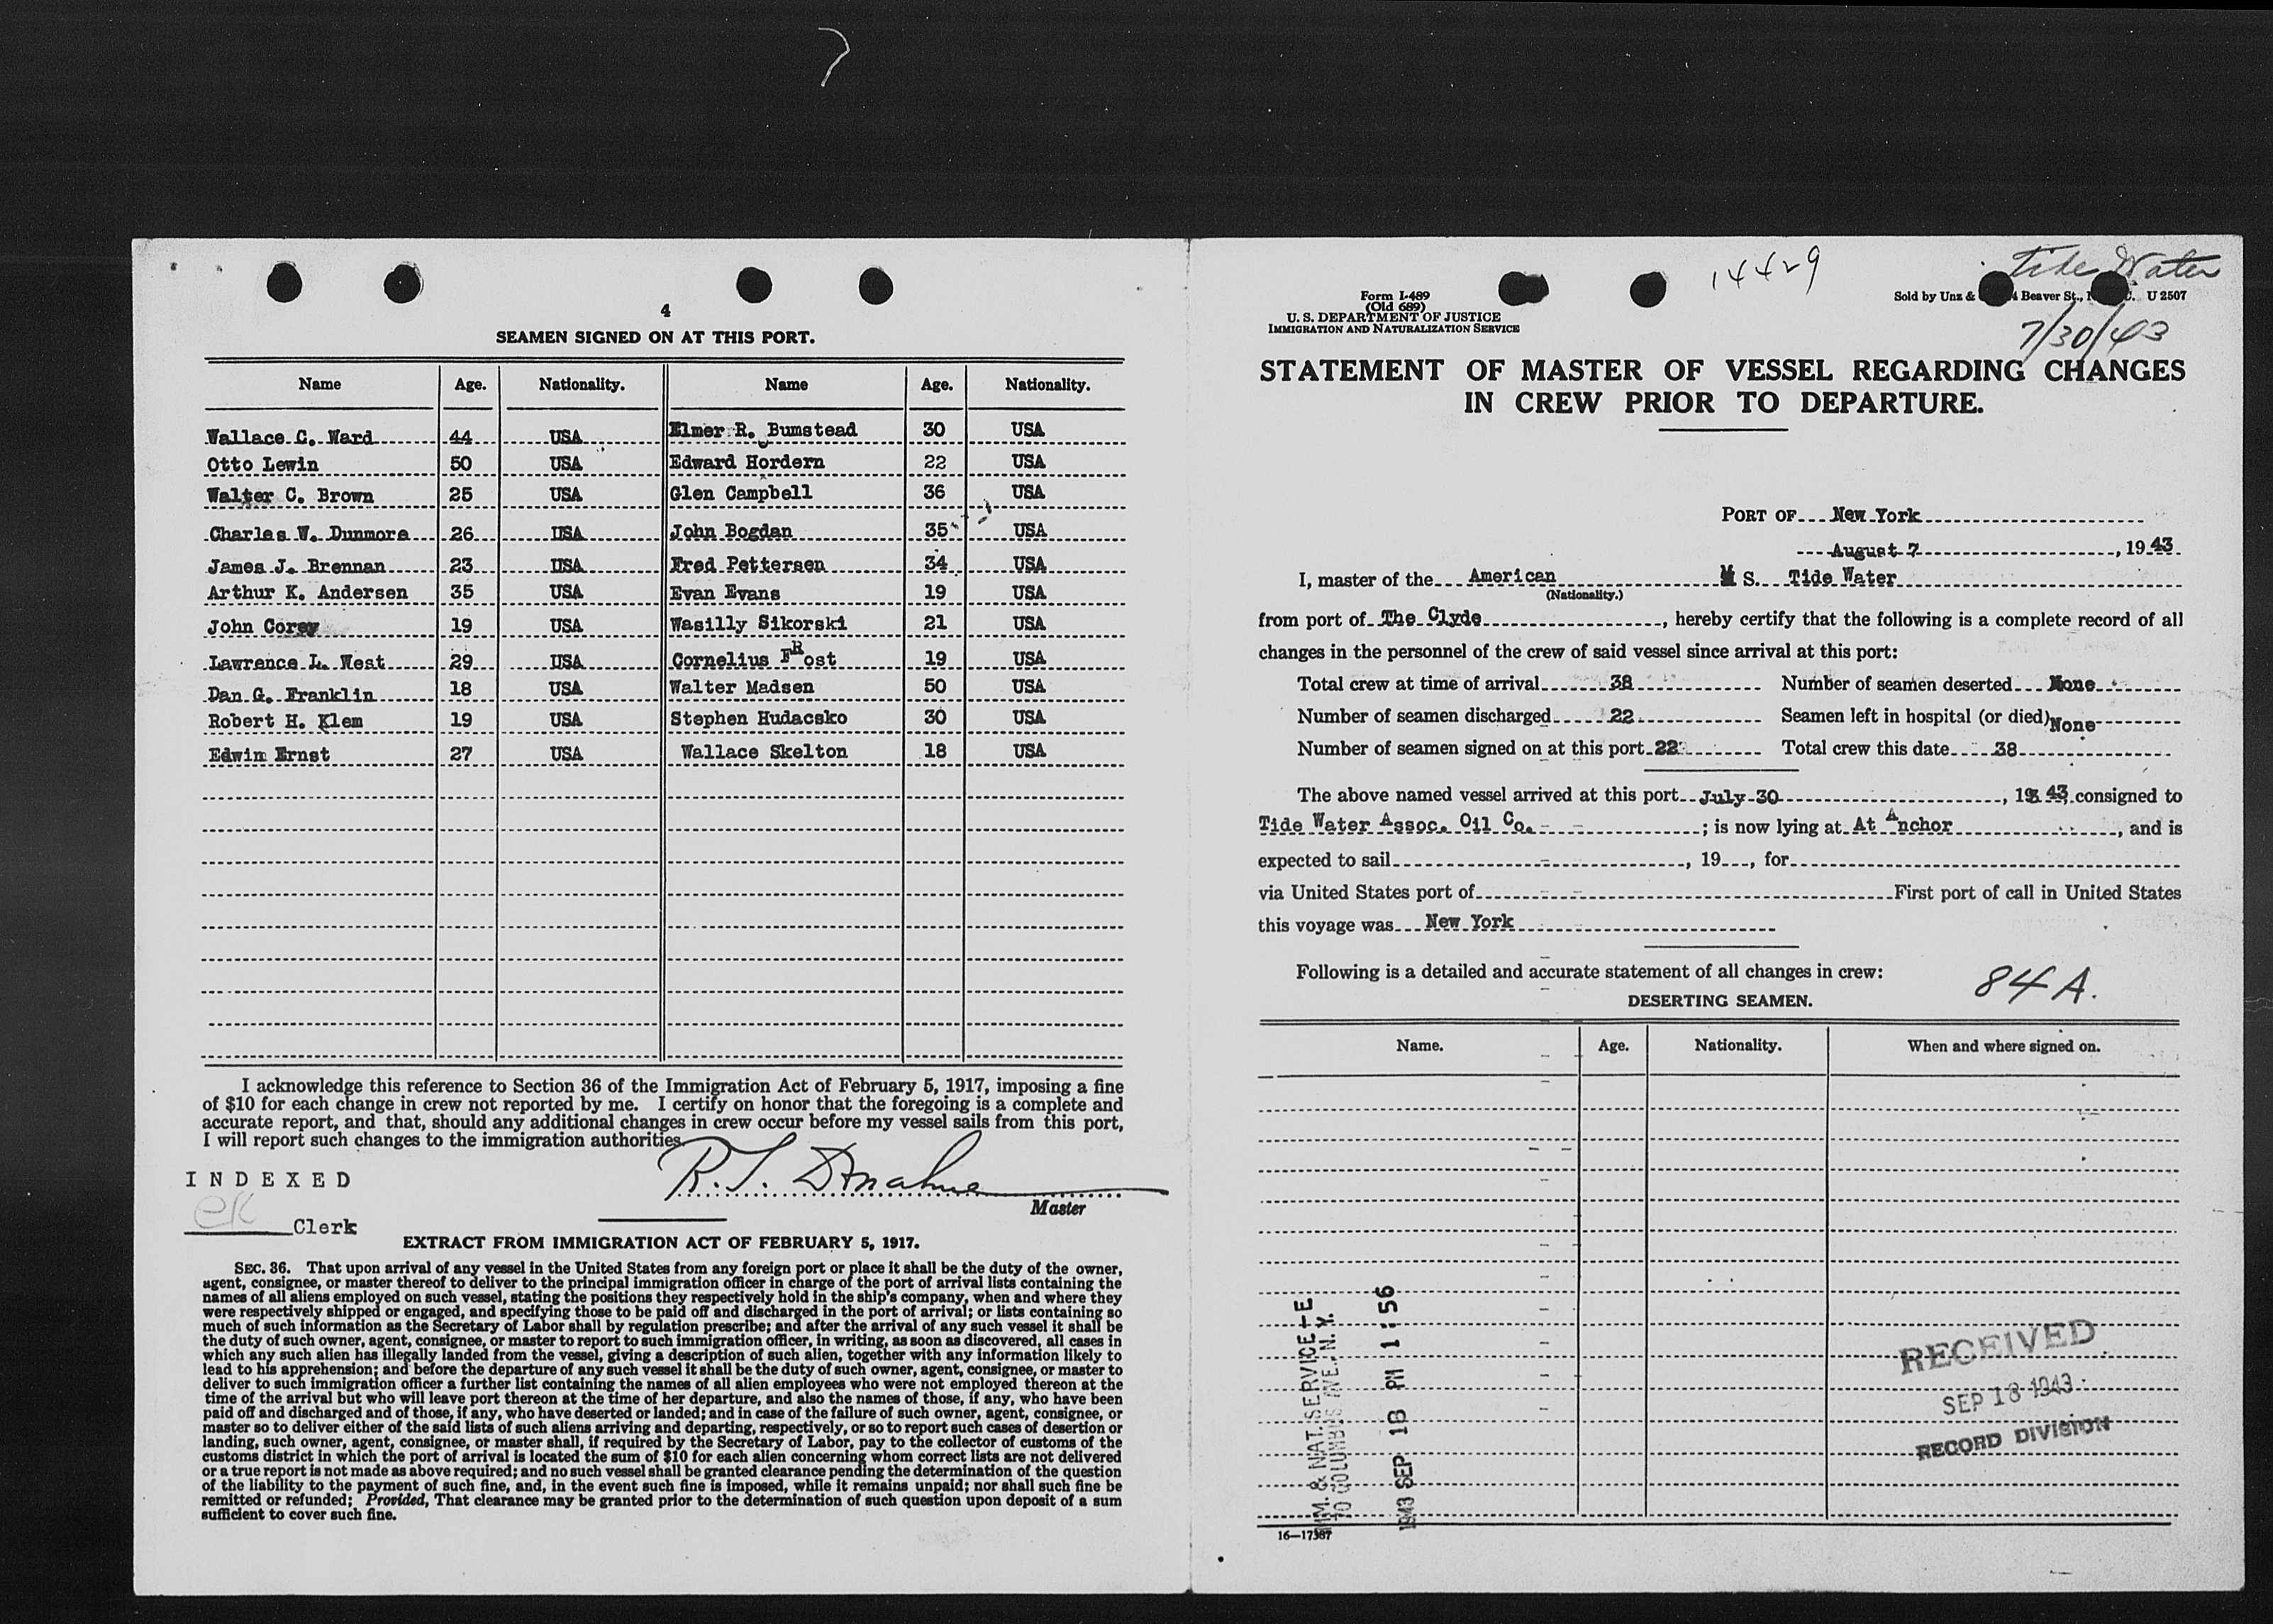 4
SEAMEN SIGNED ON AT THIS PORT.
Name Age. Nationality. Name Age. Nationality.
Wallace C. Ward 44 USA Elmer R. Bumstead 30 USA
Otto Lewin 50 USA Edward Hordern 22 USA
Walter C. Brown 25 USA Glen Campbell 36 USA
Charles W. Dunmore 26 USA John Bogdan 35 USA
James J. Brennan 23 USA Fred Pettersen 34 USA
Arthur K. Andersen 35 USA Evan Evans 19 USA
John Corey 19 USA Wasilly Sikorski 21 USA
Lawrence L. West 29 USA Cornelius FRost 19 USA
Dan G. Franklin 18 USA Walter Madsen 50 USA
Robert H. Klem 19 USA Stephen Hudacsko 30 USA
Edwin Ernst 27 USA Wallace Skelton 18 USA
I acknowledge this reference to Section 36 of the Immigration Act of February 5, 1917, imposing a fine
of $10 for each change in crew not reported by me. I certify on honor that the foregoing is a complete and
accurate report, and that, should any additional changes in crew occur before my vessel sails from this port,
I will report such changes to the immigration authorities.
R. J. Donahue
Master
INDEXED
CK Clerk
EXTRACT FROM IMMIGRATION ACT OF FEBRUARY 5, 1917.
SEC. 36. That upon arrival of any vessel in the United States from any foreign port or place it shall be the duty of the owner,
agent, consignee, or master thereof to deliver to the principal immigration officer in charge of the port of arrival lists containing the
names of all aliens employed on such vessel, stating the positions they respectively hold in the ship's company, when and where they
were respectively shipped or engaged, and specifying those to be paid off and discharged in the port of arrival; or lists containing so
much of such information as the Secretary of Labor shall by regulation prescribe; and after the arrival of any such vessel it shall be
the duty of such owner, agent, consignee, or master to report to such immigration officer, in writing, as soon as discovered, all cases in
which any such alien has illegally landed from the vessel, giving a description of such alien, together with any information likely to
lead to his apprehension; and before the departure of any such vessel it shall be the duty of such owner, agent, consignee, or master to
deliver to such immigration officer a further list containing the names of all alien employees who were not employed thereon at the
time of the arrival but who will leave port thereon at the time of her departure, and also the names of those, if any, who have been
paid off and discharged and of those, if any, who have deserted or landed; and in case of the failure of such owner, agent, consignee, or
master so to deliver either of the said lists of such aliens arriving and departing, respectively, or so to report such cases of desertion or
landing, such owner, agent, consignee, or master shall, if required by the Secretary of Labor, pay to the collector of customs of the
customs district in which the port of arrival is located the sum of $10 for each alien concerning whom correct lists are not delivered
or a true report is not made as above required; and no such vessel shall be granted clearance pending the determination of the question
of the liability to the payment of such fine, and, in the event such fine is imposed, while it remains unpaid; nor shall such fine be
remitted or refunded; Provided, That clearance may be granted prior to the determination of such question upon deposit of a sum
sufficient to cover such fine.
14429
Tide Water
7/30/43
Form I-489
(Old 689)
U. S. DEPARTMENT OF JUSTICE
IMMIGRATION AND NATURALIZATION SERVICE
Sold by Unz & Beaver St., U 2507
STATEMENT OF MASTER OF VESSEL REGARDING CHANGES
IN CREW PRIOR TO DEPARTURE.
PORT OF New York
August 7, 1943
I, master of the American M S. Tide Water
(Nationality.)
from port of The Clyde, hereby certify that the following is a complete record of all
changes in the personnel of the crew of said vessel since arrival at this port:
Total crew at time of arrival 38 Number of seamen deserted None
Number of seamen discharged 22 Seamen left in hospital (or died) None
Number of seamen signed on at this port 22 Total crew this date 38
The above named vessel arrived at this port July 30, 1943 consigned to
Tide Water Assoc. Oil Co. ; is now lying at At Anchor, and is
expected to sail, 19, for
via United States port of First port of call in United States
this voyage was New York
Following is a detailed and accurate statement of all changes in crew:
84 A.
DESERTING SEAMEN.
Name. Age. Nationality. When and where signed on.
IMM. & NAT. SERVICE-E
70 COLUMBUS AVE., N.Y.
1943 SEP 18 PM 1:56
RECEIVED
SEP 18 1943
RECORD DIVISION
16—17387